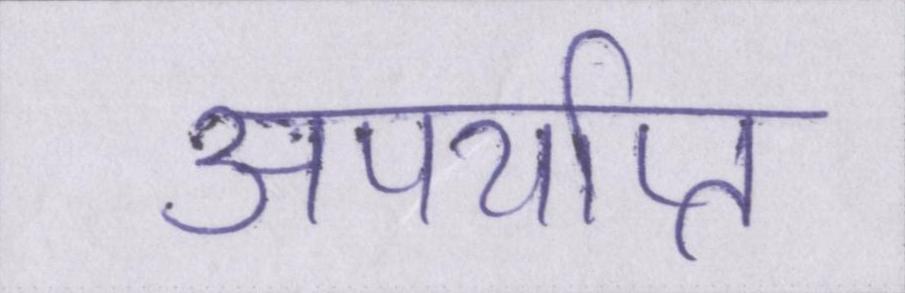 अपर्याप्त